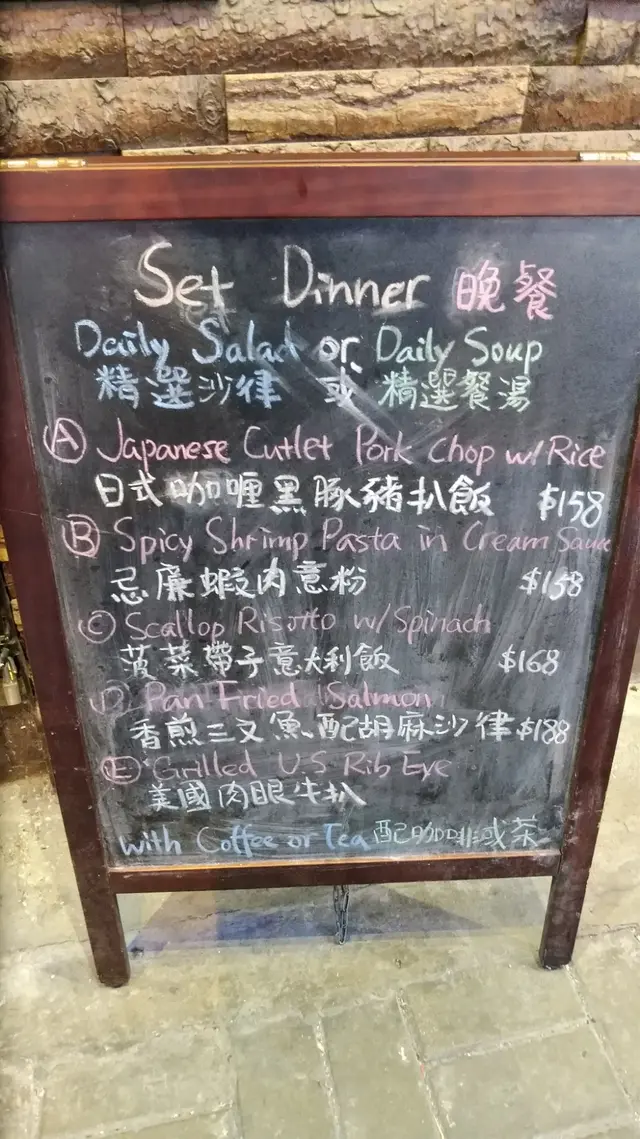 Set Dinner 晚餐
Daily Salad or Daily Soup
精選沙律 或 精選餐湯
Ⓐ Japanese Cutlet Pork Chop w/ Rice
日式咖喱黑豚豬扒飯 $158
Ⓑ Spicy Shrimp Pasta in Cream Sauce
忌廉蝦肉意粉 $158
Ⓒ Scallop Risotto w/ Spinach
菠菜帶子意大利飯 $168
Ⓓ Pan Fried Salmon
香煎三文魚配胡麻沙律 $188
Ⓔ Grilled US Rib Eye
美國肉眼牛扒
with Coffee or Tea 配咖啡或茶